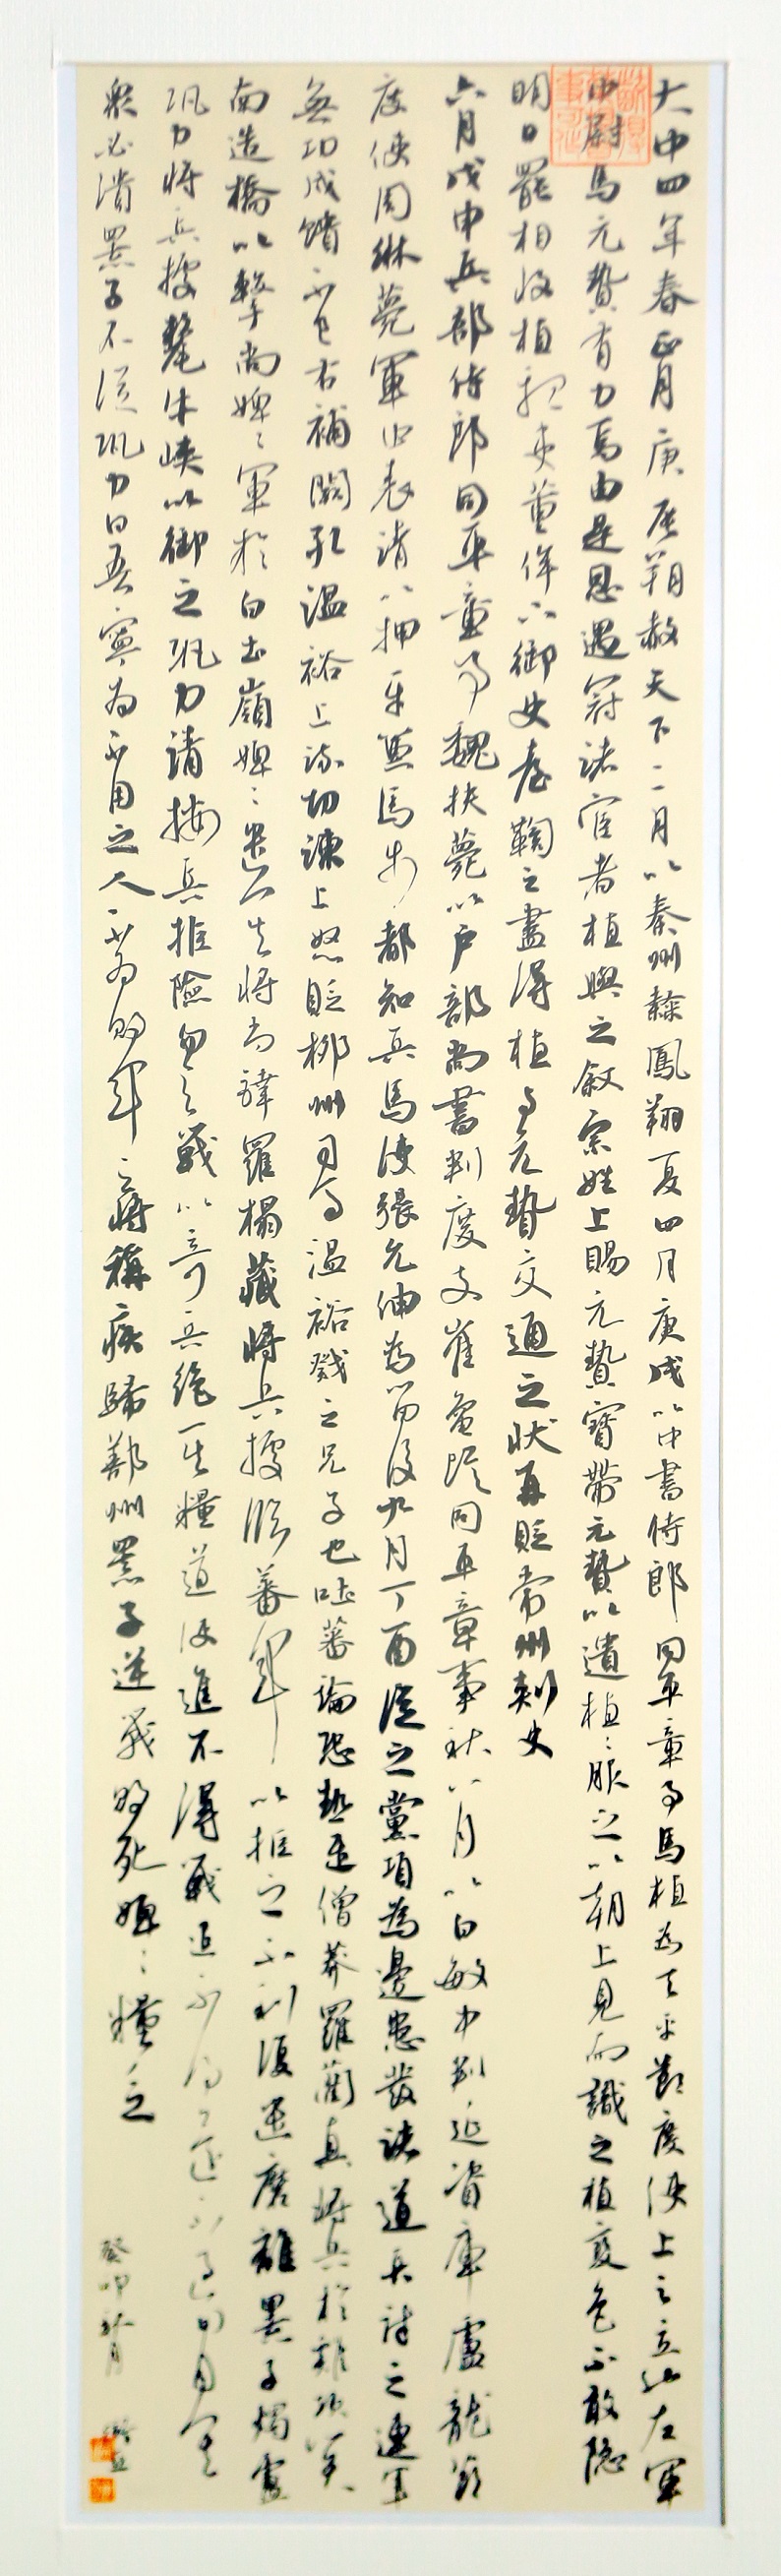 大中四年春正月庚辰朔赦天下二月以秦州隸鳳翔夏四月庚戌以中書侍郎同平章事馬植為天平節度使上之立也左軍
中尉馬元贄有力焉由是恩遇冠諸宦者植與之敘宗姓上賜元贄寶帶元贄以遺植植服之以朝上見而識之植變色不敢隱
明日罷相收植親吏董侔下御史臺鞫之盡得植與元贄交通之狀再貶常州刺史
六月戊申兵部侍郎同平章事魏扶薨以戶部尚書判度支崔龜從同平章事秋八月以白敏中判延資庫盧龍節
度使周綝薨軍中表請以押牙兼馬步都知兵馬使張允伸為留後九月丁酉從之黨項為邊患發諸道兵討之連年
無功戍饋不已右補闕孔溫裕上疏切諫上怒貶柳州司馬溫裕戣之兄子也吐蕃論恐熱遣僧莽羅藺真將兵於雞項關
南造橋以擊尚婢婢軍於白土嶺婢婢遣其將尚鐸羅榻藏將兵據臨蕃軍以拒之不利復遣磨離羆子燭盧
巩力將兵據氂牛峽以御之巩力請按兵拒險勿與戰以奇兵絕其糧道使進不得戰退不得還不過旬月其
眾必潰羆子不從巩力曰吾寧為不用之人不為敗軍之將稱疾歸鄯州羆子逆戰敗死婢婢糧乏
癸卯秋月